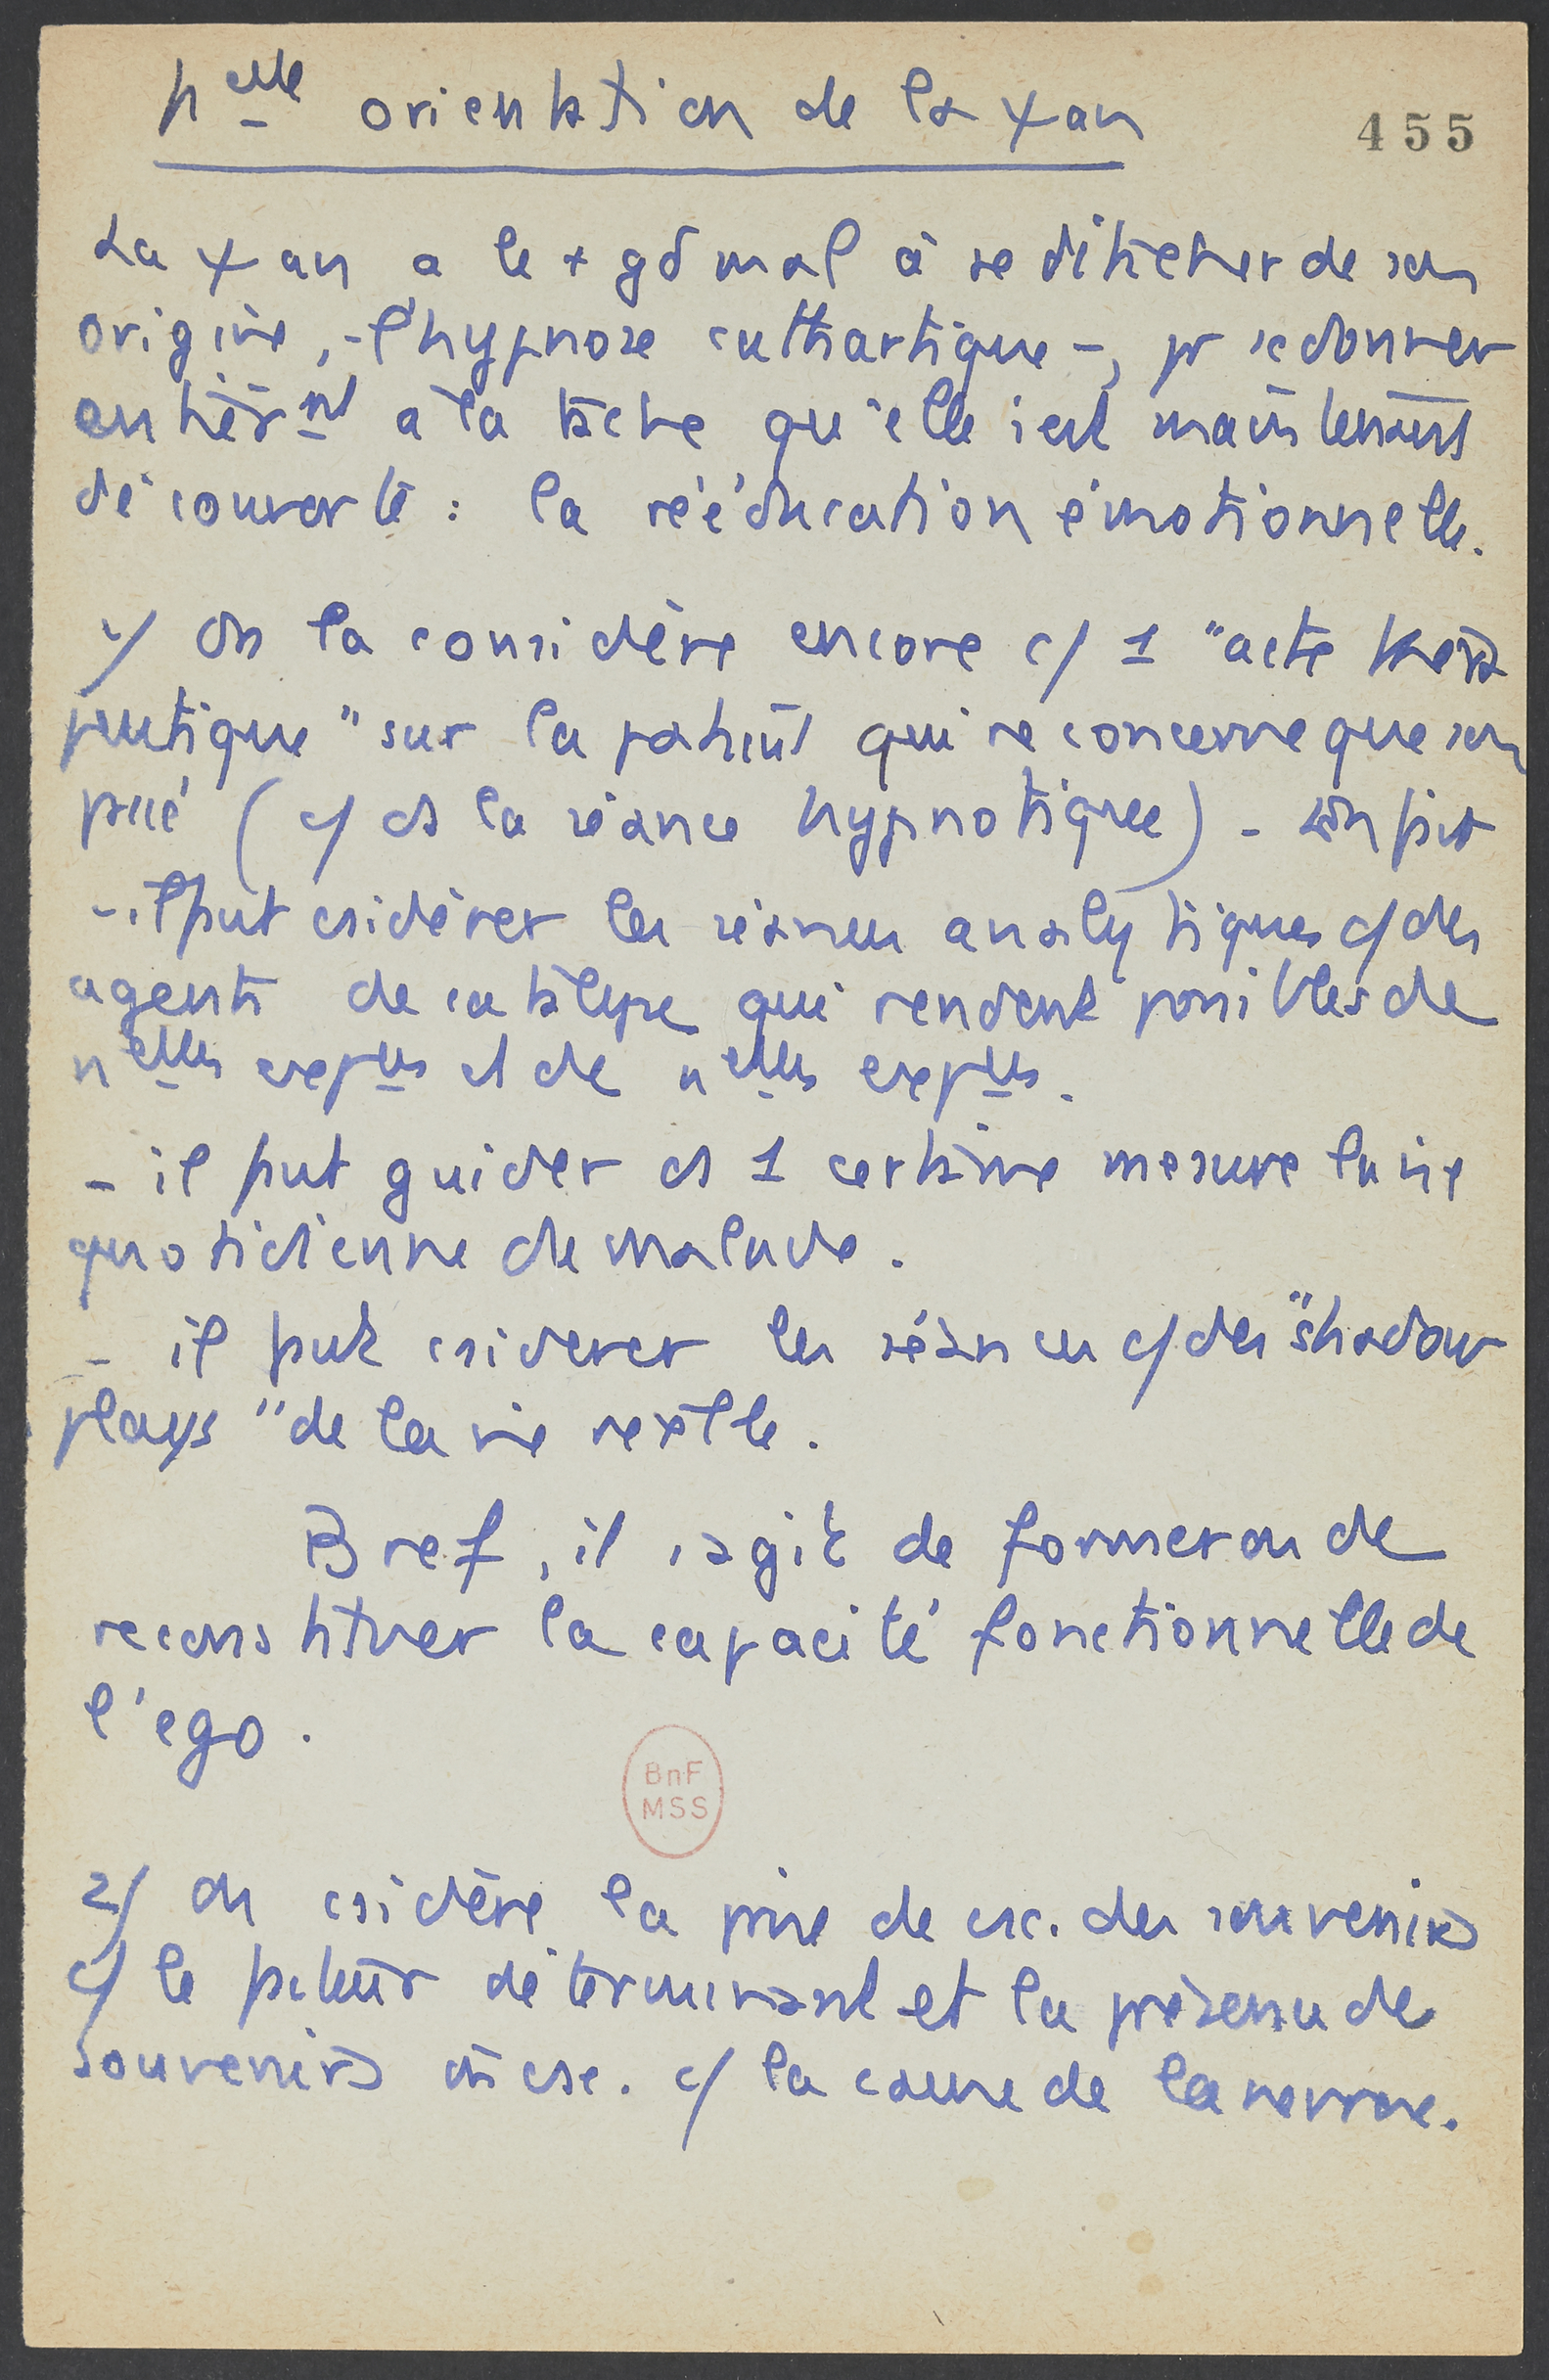 nelle orientation de la ψan
455
La ψan a le + gd mal à se détacher de son
origine, - l'hypnose cathartique -, pr se donner
entièrmt à la tâche qu'elle s'est maintenant
découverte : la rééducation émotionnelle.
1/ on la considère encore c/ 1 "acte théra
peutique" sur la patient qui ne concerne que son
passé (c/ ds la séance hypnotique) - En fait
- il faut csidérer les séances analytiques c/ des
agents de catalyse qui rendent possibles de
nelles et de nelles
- il faut guider ds 1 certaine mesure la vie
quotidienne de malade.
- il faut csiderer les séances c/ des "shadow
plays" de la vie réelle.
Bref, il s'agit de former ou de
reconstituer la capacité fonctionnelle de
l'ego.
BnF
MSS
2/ on csidère la prise de csc. des souvenirs
c/ le facteur déterminant et la présence de
souvenirs incsc. c/ la cause de la nevrose.